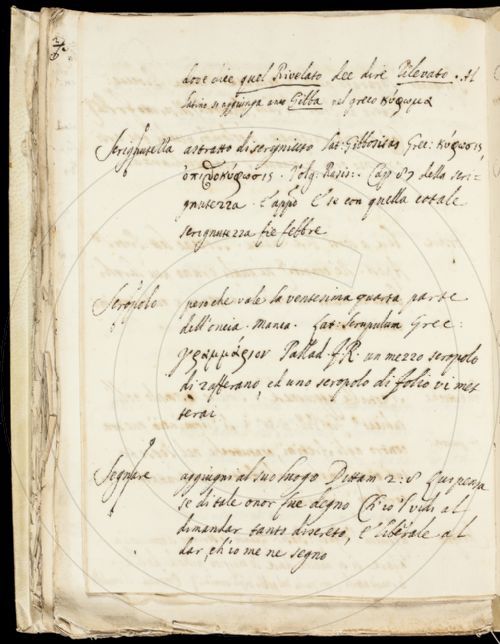 dove dice quel Rivelato dee dire Rilevato. Al
latino si aggiunga anco Gilba nel greco κύφωμα
Scrignutezza astratto di scrignuto Lat: Gibbositas Gree: κύφωσις,
ὀπισθοκύφωσις. Volg: Rasis: Cap 87 della scri-
gnutezza. E appo E se con quella cotale
scrignutezza fie febbre
Scropolo peso che vale la ventesima quarta parte
dell'oncia. Manca. Lat: Scrupulum Gree:
γραμμάριον Pallad. F.R. un mezzo scropolo
di zafferano, ed uno scropolo di folio vi met
terai
Segnare aggiugni al suo luogo Dittam 2: 8 Qui pensa
se di tale onor fue degno Ch'io 'l vidi al
dimandar tanto discreto, E liberale al
dar, ch'io me ne segno